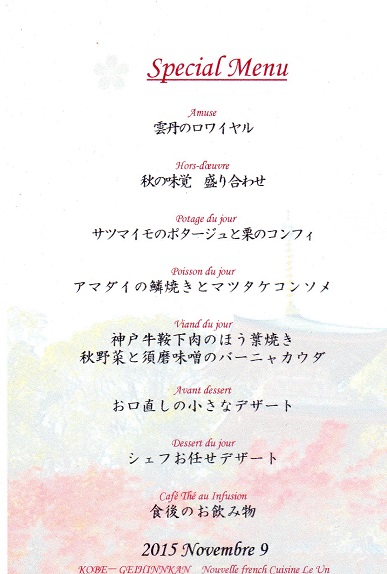 Special Menu
Amuse
雲丹のロワイヤル
Hors-dœuvre
秋の味覚　盛り合わせ
Potage du jour
サツマイモのポタージュと栗のコンフィ
Poisson du jour
アマダイの鱗焼きとマツタケコンソメ
Viand du jour
神戸牛鞍下肉のほう葉焼き
秋野菜と須磨味噌のバーニャカウダ
Avant dessert
お口直しの小さなデザート
Dessert du jour
シェフお任せデザート
Cafè Thé au Infusion
食後のお飲み物
2015 Novembre 9
KOBE－GEIHINNKAN　Nouvelle french Cuisine Le Un